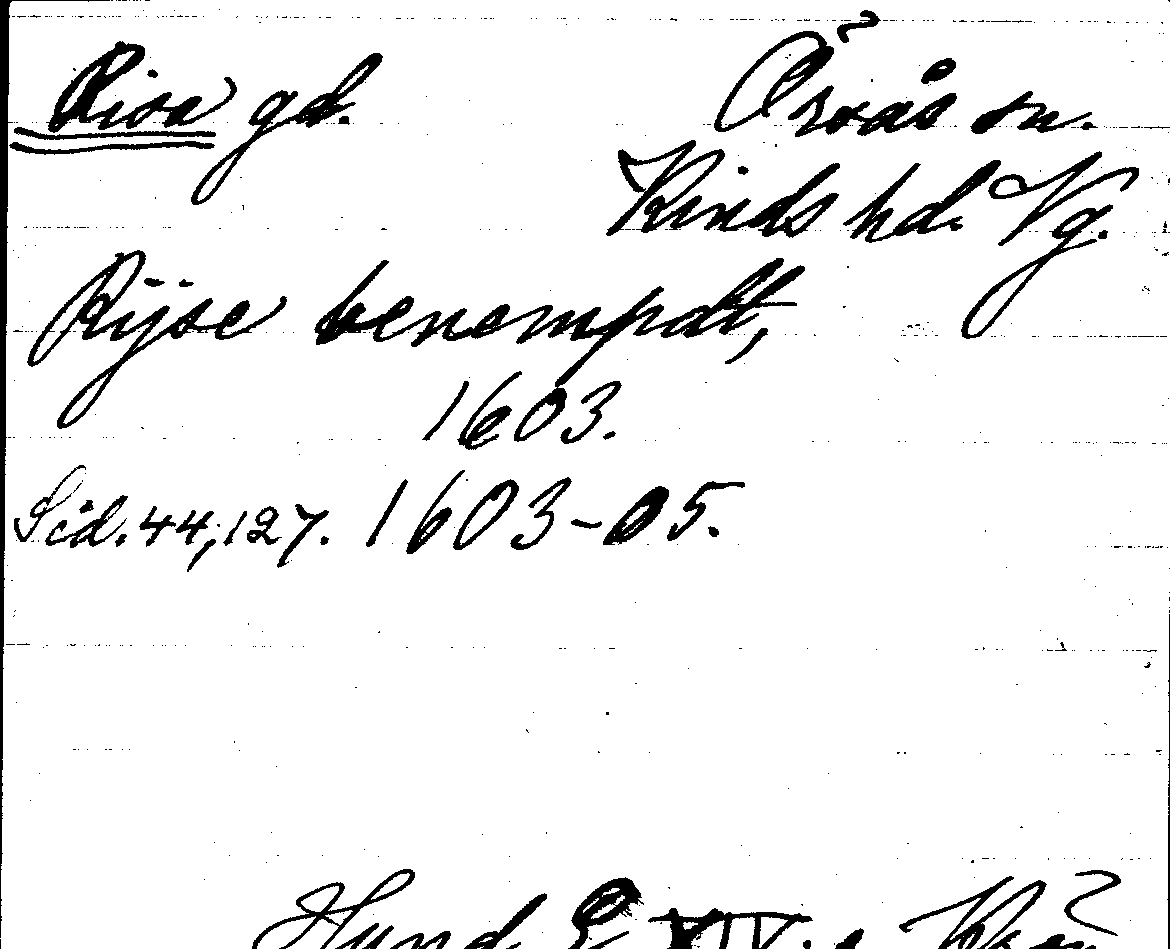 Risa gd. Örsås sn.
Kinds hd. Vg.
Rijse benempdt,
1603.
Sid. 44, 127. 1603-05.
Hund